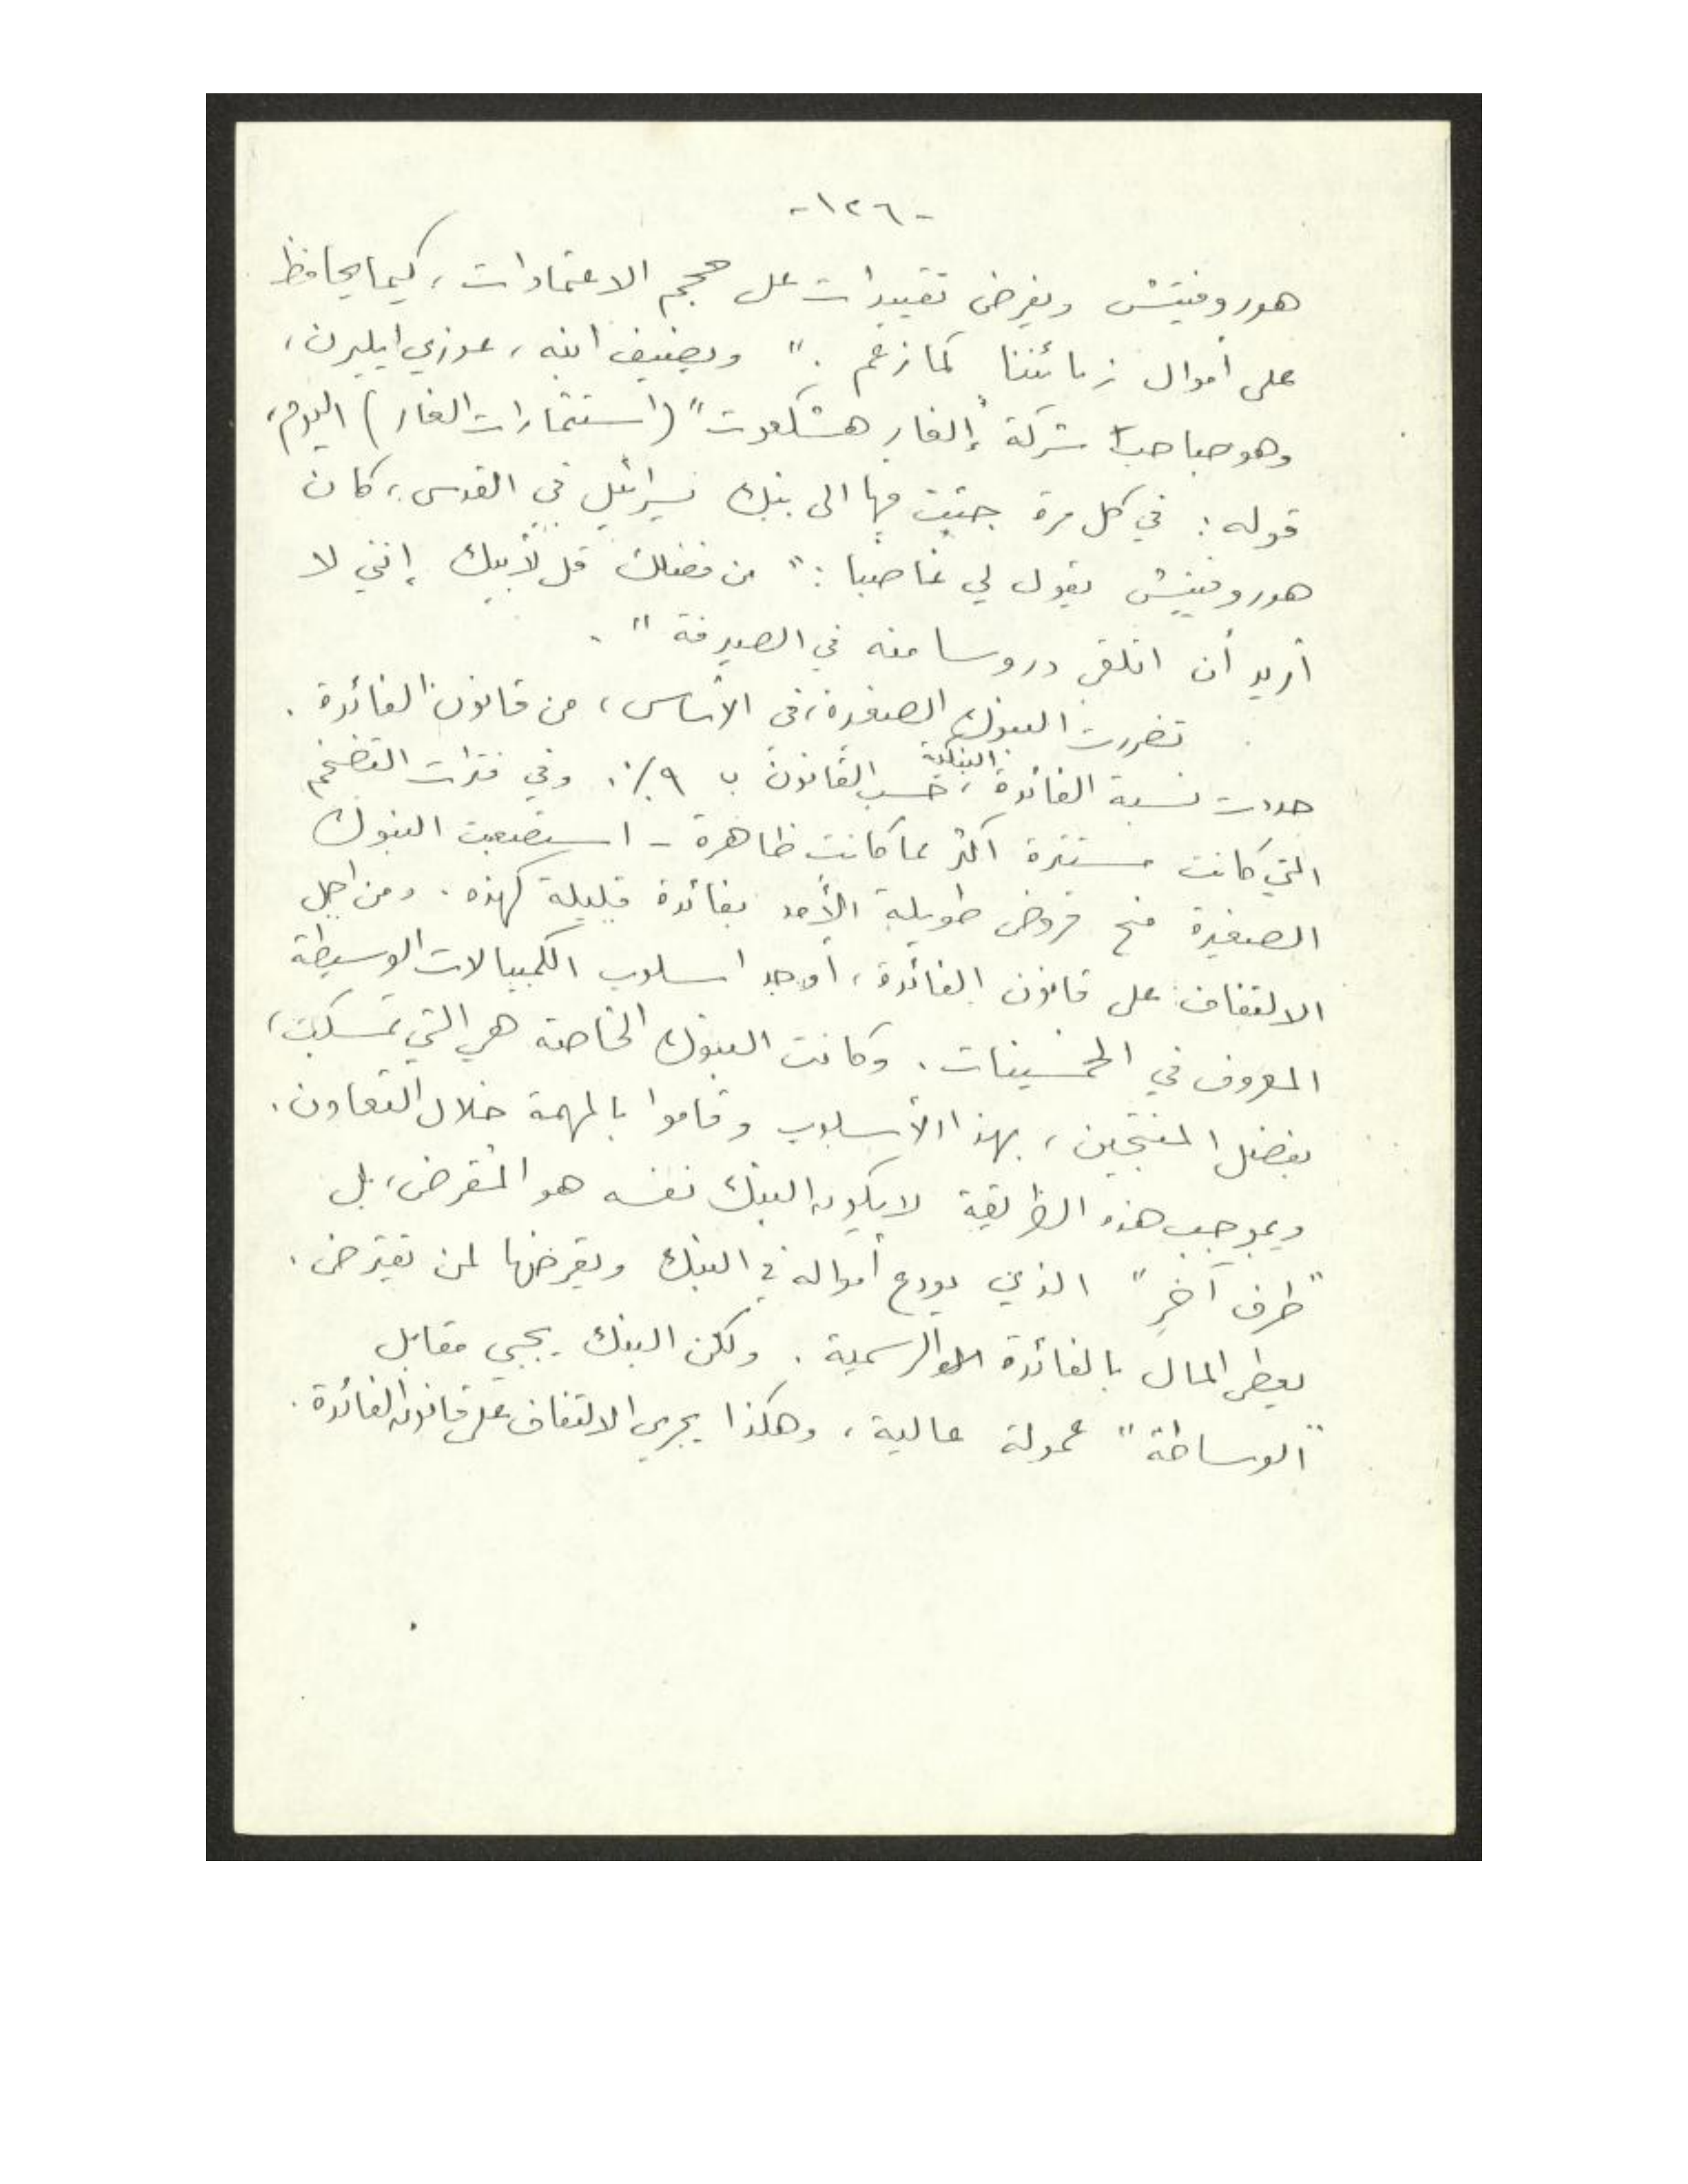 -١٢٦-
هوروفيتش ويفرض تقييدات على حجم الاعتمادات، كيما يحافظ
على أموال زبائننا كما زعم." ويضيف ابنه، عوزي ايليرن،
وهو صاحب شركة "إلغار هشكعوت" (استثمارات الغار) اليوم،
قوله: في كل مرة جئت فيها الى بنك يسرائيل في القدس، كان
هوروفيتش يقول لي غاضبا: "من فضلك قل لأبيك إنني لا
أريد أن اتلقى دروسا منه في الصيرفة".
تضررت البنوك الصغيرة، في الأساس، من قانون الفائدة.
حددت نسبة الفائدة البنكية، حسب القانون ب ٩٪. وفي فترات التضخم
التي كانت مستترة اكثر مما كانت ظاهرة - استصعبت البنوك
الصغيرة منح قروض طويلة الأمد بفائدة قليلة كهذه. ومن اجل
الالتفاف على قانون الفائدة، أوجد اسلوب الكمبيالات الوسيطة
المعروف في الخمسينات. وكانت البنوك الخاصة هي التي تمسكت،
بفضل المنتجين، بهذا الأسلوب وقاموا بالمهمة خلال التعاون.
وبموجب هذه الطريقة لا يكون البنك نفسه هو المقرض، بل
"طرف آخر" الذي يودع أمواله في البنك ويقرضها لمن يقترض.
يعطى المال بالفائدة الرسمية. ولكن البنك يجبي مقابل
"الوساطة" عمولة عالية، وهكذا يجري الالتفاف على قانون الفائدة.